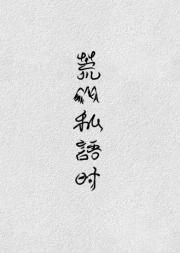 荒私語时